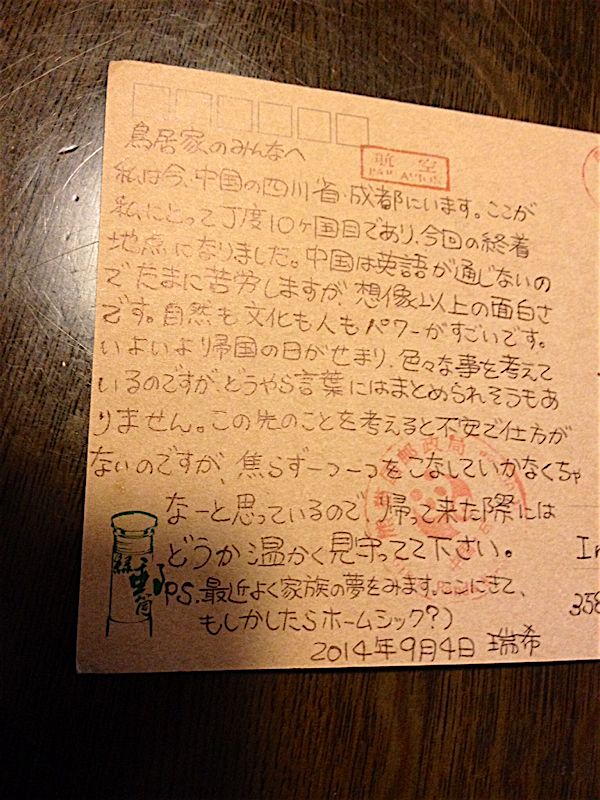 鳥居家のみんなへ
航空
PAR AVION
私は今、中国の四川省・成都にいます。ここが
私にとって丁度10ヶ国目であり、今回の終着
地点になりました。中国は英語が通じないの
でたまに苦労しますが、想像以上の面白さ
です。自然も文化も人もパワーがすごいです。
いよいより帰国の日がせまり、色々な事を考えて
いるのですが、どうやら言葉にはまとめられそうもあ
りません。この先のことを考えると不安で仕方が
ないのですが、焦らず一つ一つをこなしていかなくちゃ
なーと思っているので、帰って来た際には
どうか温かく見守ってて下さい。
P.S.最近よく家族の夢をみます。ここにきて、
もしかしたらホームシック?)
2014年9月4日 瑞希
In
358